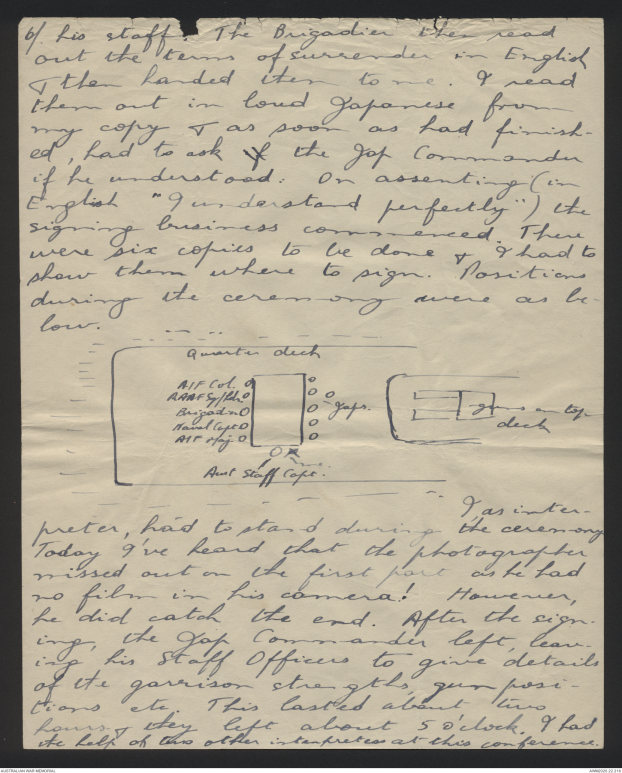 6/. his staff. The Brigadier then read
out the terms of surrender in English
& then handed item to me. I read
them out in loud Japanese from
my copy & as soon as had finish-
ed, had to ask the Jap Commander
if he understood. On assenting (in
English "I understand perfectly") the
signing business commenced. There
were six copies to be done & I had to
show them where to sign. Positions
during the ceremony were as be-
low.
Quarter deck
AIF Col. O
RAAF Sq/Ldr O
Brigadier O
Naval Capt O
AIF Maj. O
Japs.
O x
me.
Aust Staff Capt.
guns on top
deck
I as inter-
preter, had to stand during the ceremony
Today I've heard that the photographer
missed out on the first part as he had
no film in his camera! However,
he did catch the end. After the sign-
ing, the Jap Commander left, leav-
ing his Staff Officers to give details
of the garrison strengths, gun posi-
tions etc. This lasted about two
hours & they left about 5 o'clock. I had
the help of two other interpreters at this conference.
AUSTRALIAN WAR MEMORIAL